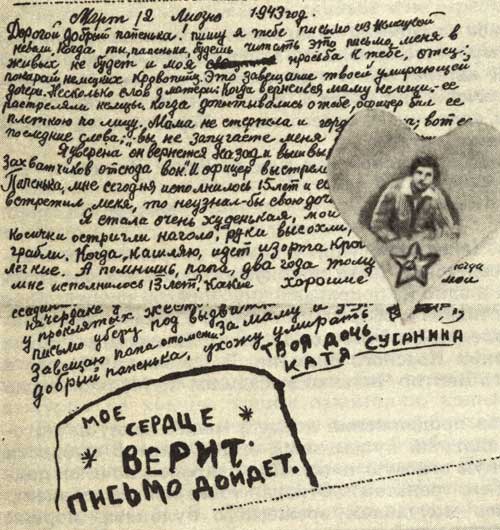 Март, 12, Лиозно 1943 год.
Дорогой, добрый папенька! Пишу я тебе письмо из немецкой
неволи. Когда ты, папенька, будешь читать это письмо, меня в
живых не будет. И моя просьба к тебе, отец:
покарай немецких кровопийц. Это завещание твоей умирающей
дочери. Несколько слов о матери. Когда вернешься, маму не ищи. Ее
расстреляли немцы. Когда допытывались о тебе, офицер бил ее
плеткою по лицу. Мама не стерпела и гордо вот ее
последние слова: „вы не запугаете меня
Я уверена он вернется назад и вышвыр
захватчиков отсюда вон." И офицер выстрелил
Папенька, мне сегодня исполнилось 15 лет и если
встретил меня, то не узнал бы свою дочь
Я стала очень худенькая, мои
косички остригли наголо, руки высохли,
грабли. Когда кашляю, идет изо рта кровь
легкие. А помнишь, папа, два года тому когда
мне исполнилось 13 лет. Какие хорошие мои
на чердаке у
у проклятых
письмо уберу под
Завещаю папа отомсти за маму и
добрый папенька, ухожу умирать
ТВОЯ ДОЧЬ
КАТЯ СУСАНИНА
МОЕ
СЕРДЦЕ
ВЕРИТ.
ПИСЬМО ДОЙДЕТ.